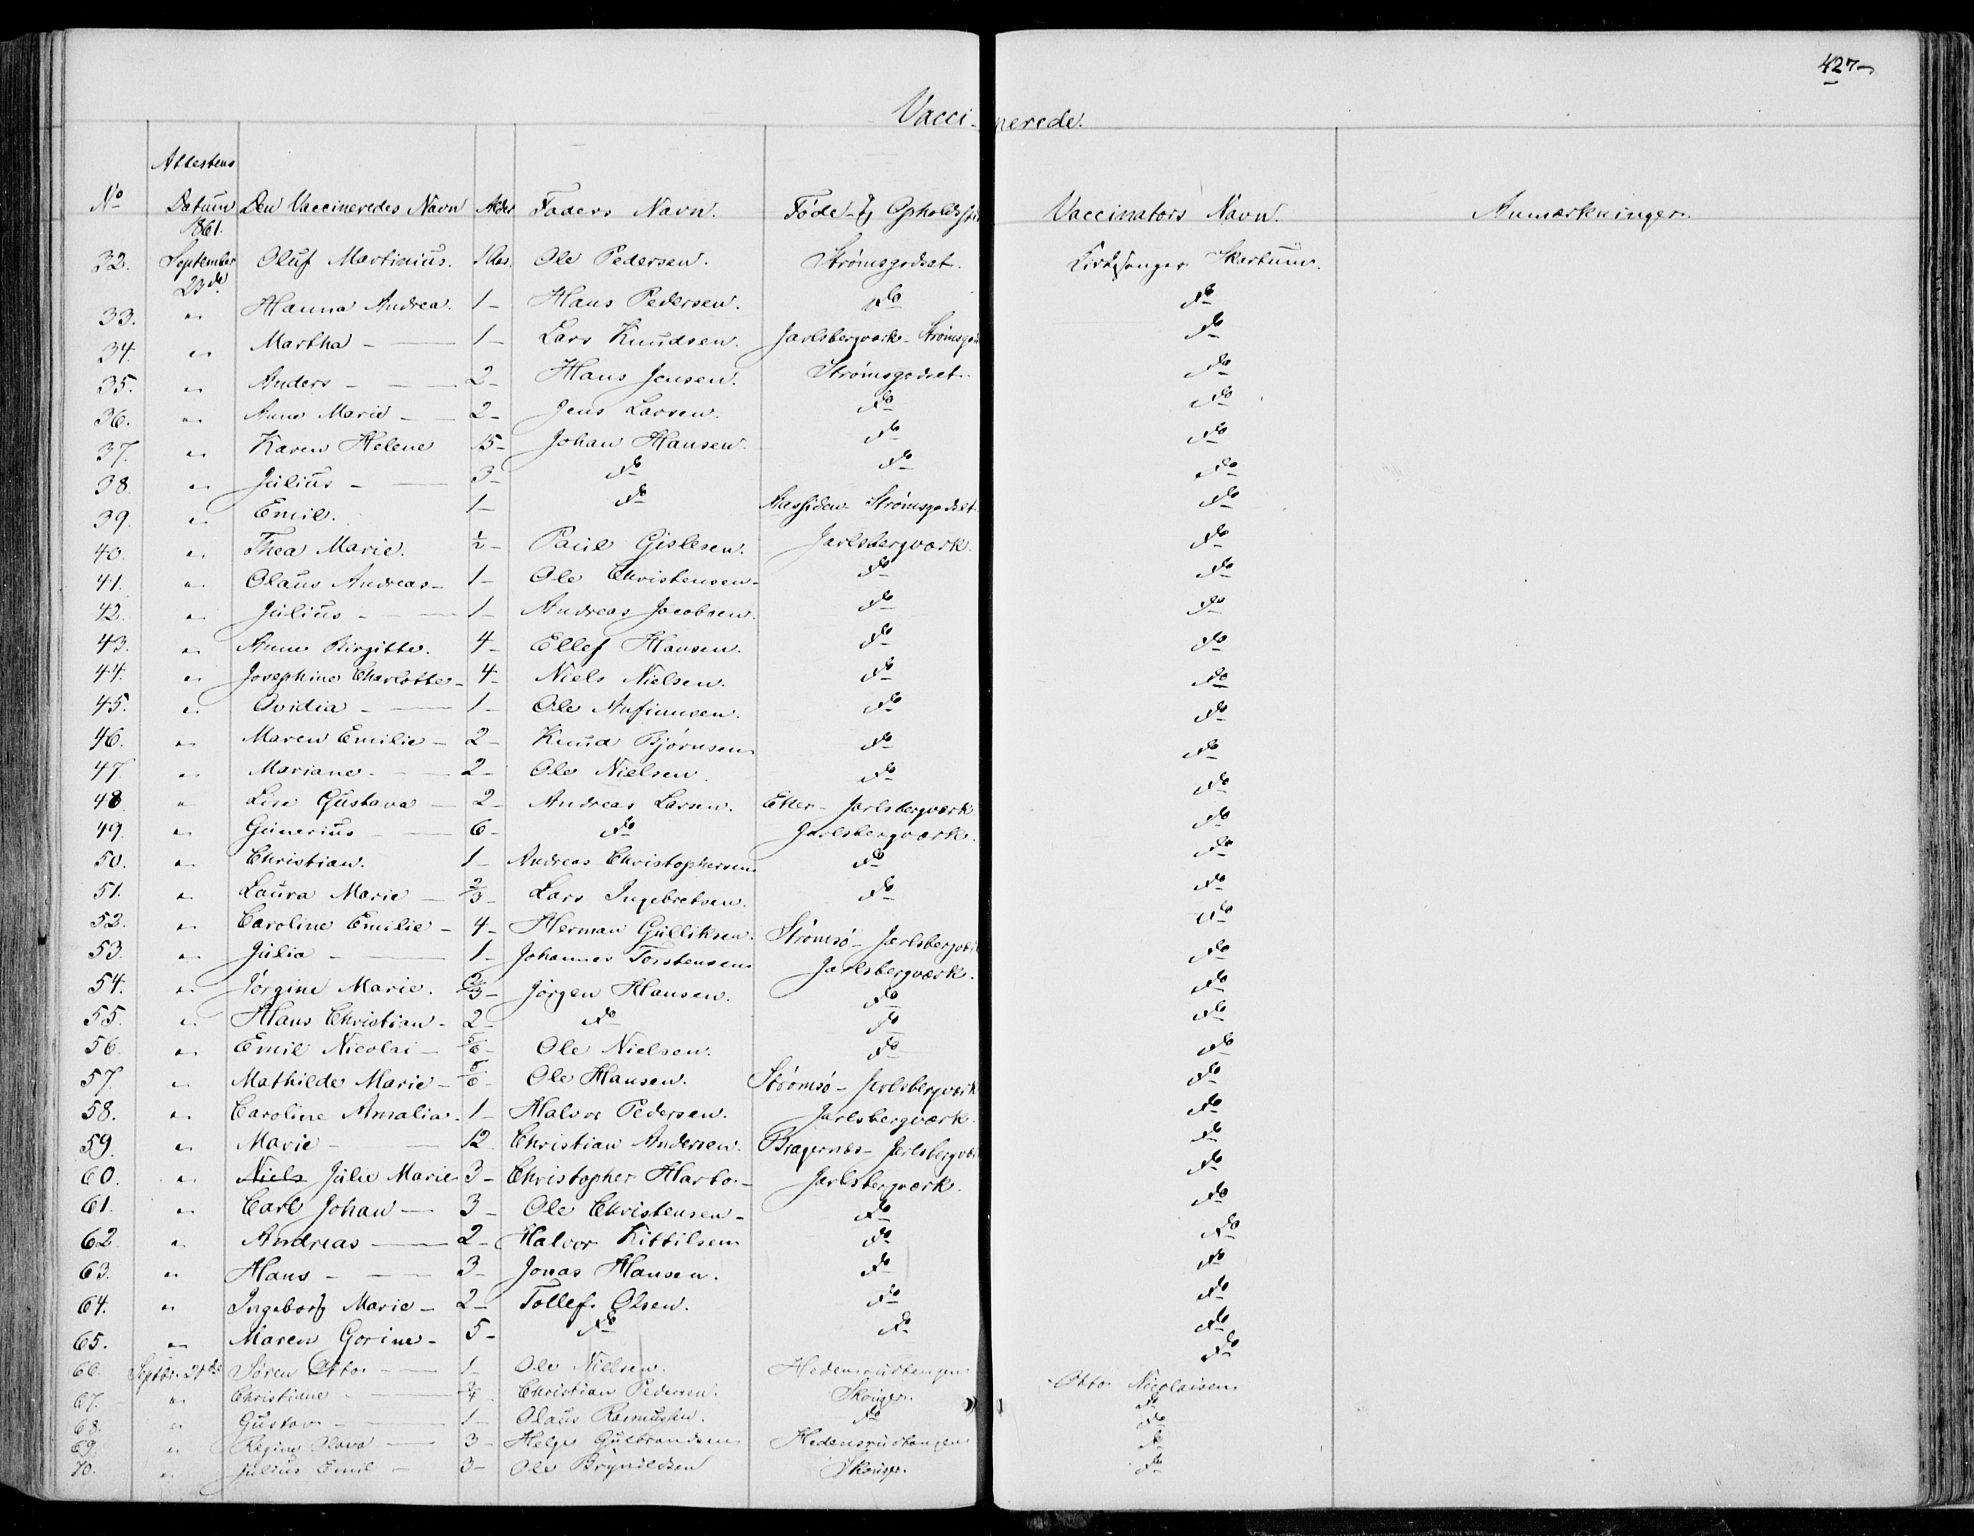 427
Vaccinerede.
No Attestens Datum 1861. Den Vaccineredes Navn Alder Faders Navn. Føde- og Opholdsst Vaccinators Navn. Anmærkninger.
32. September 23de Oluf Martinius. 1 Aar. Ole Pedersen. Strømsgodset. Kirkesanger Skartum.
33. " Hanna Andrea. 1 - Hans Pedersen. do do
34. " Martha - 1 - Lars Knudsen. Jarlsbergværk - Strømsgo do
35. " Anders - 2 - Hans Jensen. Strømsgodset. do
36. " Anne Marie - 2 - Jens Larsen. do do
37. " Karen Helene 15 - Johan Hansen. do do
38. " Julius - 3 - do do do
39. " Emil. 1 - do Strømsgodset. do
40. " Thea Marie. ½ - Paul Gislesen. Jarlsbergværk. do
41. " Olaus Andreas - 1 - Ole Christensen - do do
42. " Julius - 1 - Andreas Jacobsen. do do
43. " Anne Birgitte. 4 - Ellef Hansen. do do
44. " Josephine Charlotte - 4 - Niels Nielsen. do do
45. " Ovidia - 1 - Ole Anfinnsen. do do
46. " Maren Emilie - 2 - Knud Bjørnsen do do
47. " Mariane. - 2 - Ole Nielsen. do do
48. " Lise Gustava - 2 - Andreas Larsen. Eker - Jarlsbergværk do
49. " Gunerius - 6 - do Jarlsbergværk. do
50. " Christian. 1 - Andreas Christophersen do do
51. " Laura Marie - 2/3 - Lars Ingebretsen. do do
52. " Caroline Emilie - 4 - Herman Gulliksen. Strømsø - Jarlsbergvær do
53. " Julia - 1 - Johannes Torstensen Jarlsbergværk. do
54. " Jørgine Marie. 2/3 - Jørgen Hansen. do do
55. " Hans Christian - 2 - do do do
56. " Emil Nicolai - 5/6 - Ole Nielsen. do do
57. " Mathilde Marie - 5/6 - Ole Hansen. Strømsø - Jarlsbergværk do
58. " Caroline Amalia. 1 - Halvor Pedersen. Jarlsbergværk. do
59. " Marie - 12 Christian Andersen. Bragernæs - Jarlsbergvær do
60. " Niels Julie Marie 3 - Christopher Jarlsbergværk. do
61. " Carl Johan - 3 - Ole Christensen - do do
62. " Andreas - 2 - Halvor Kittilsen do do
63. " Hans - 3 - Jonas Hansen. do do
64. " Ingeborg Marie - 2 - Tollef Olsen. do do
65. " Maren Gorine - 5 - do do do
66. Septbr. Søren Otto 1 - Ole Nielsen. Hedensrudtangen do
67. " Christiane - ¾ - Christian Pedersen. Skouger. Otto Nicolaisen
68. " Gustav - 1 - Olaus Rasmussen. do do
69. " Regine Olava - 3 - Helge Gulbrandsen Hedensrudtangen do
70. " Julius Emil - 3 - Ole Brynildsen Skouger. do